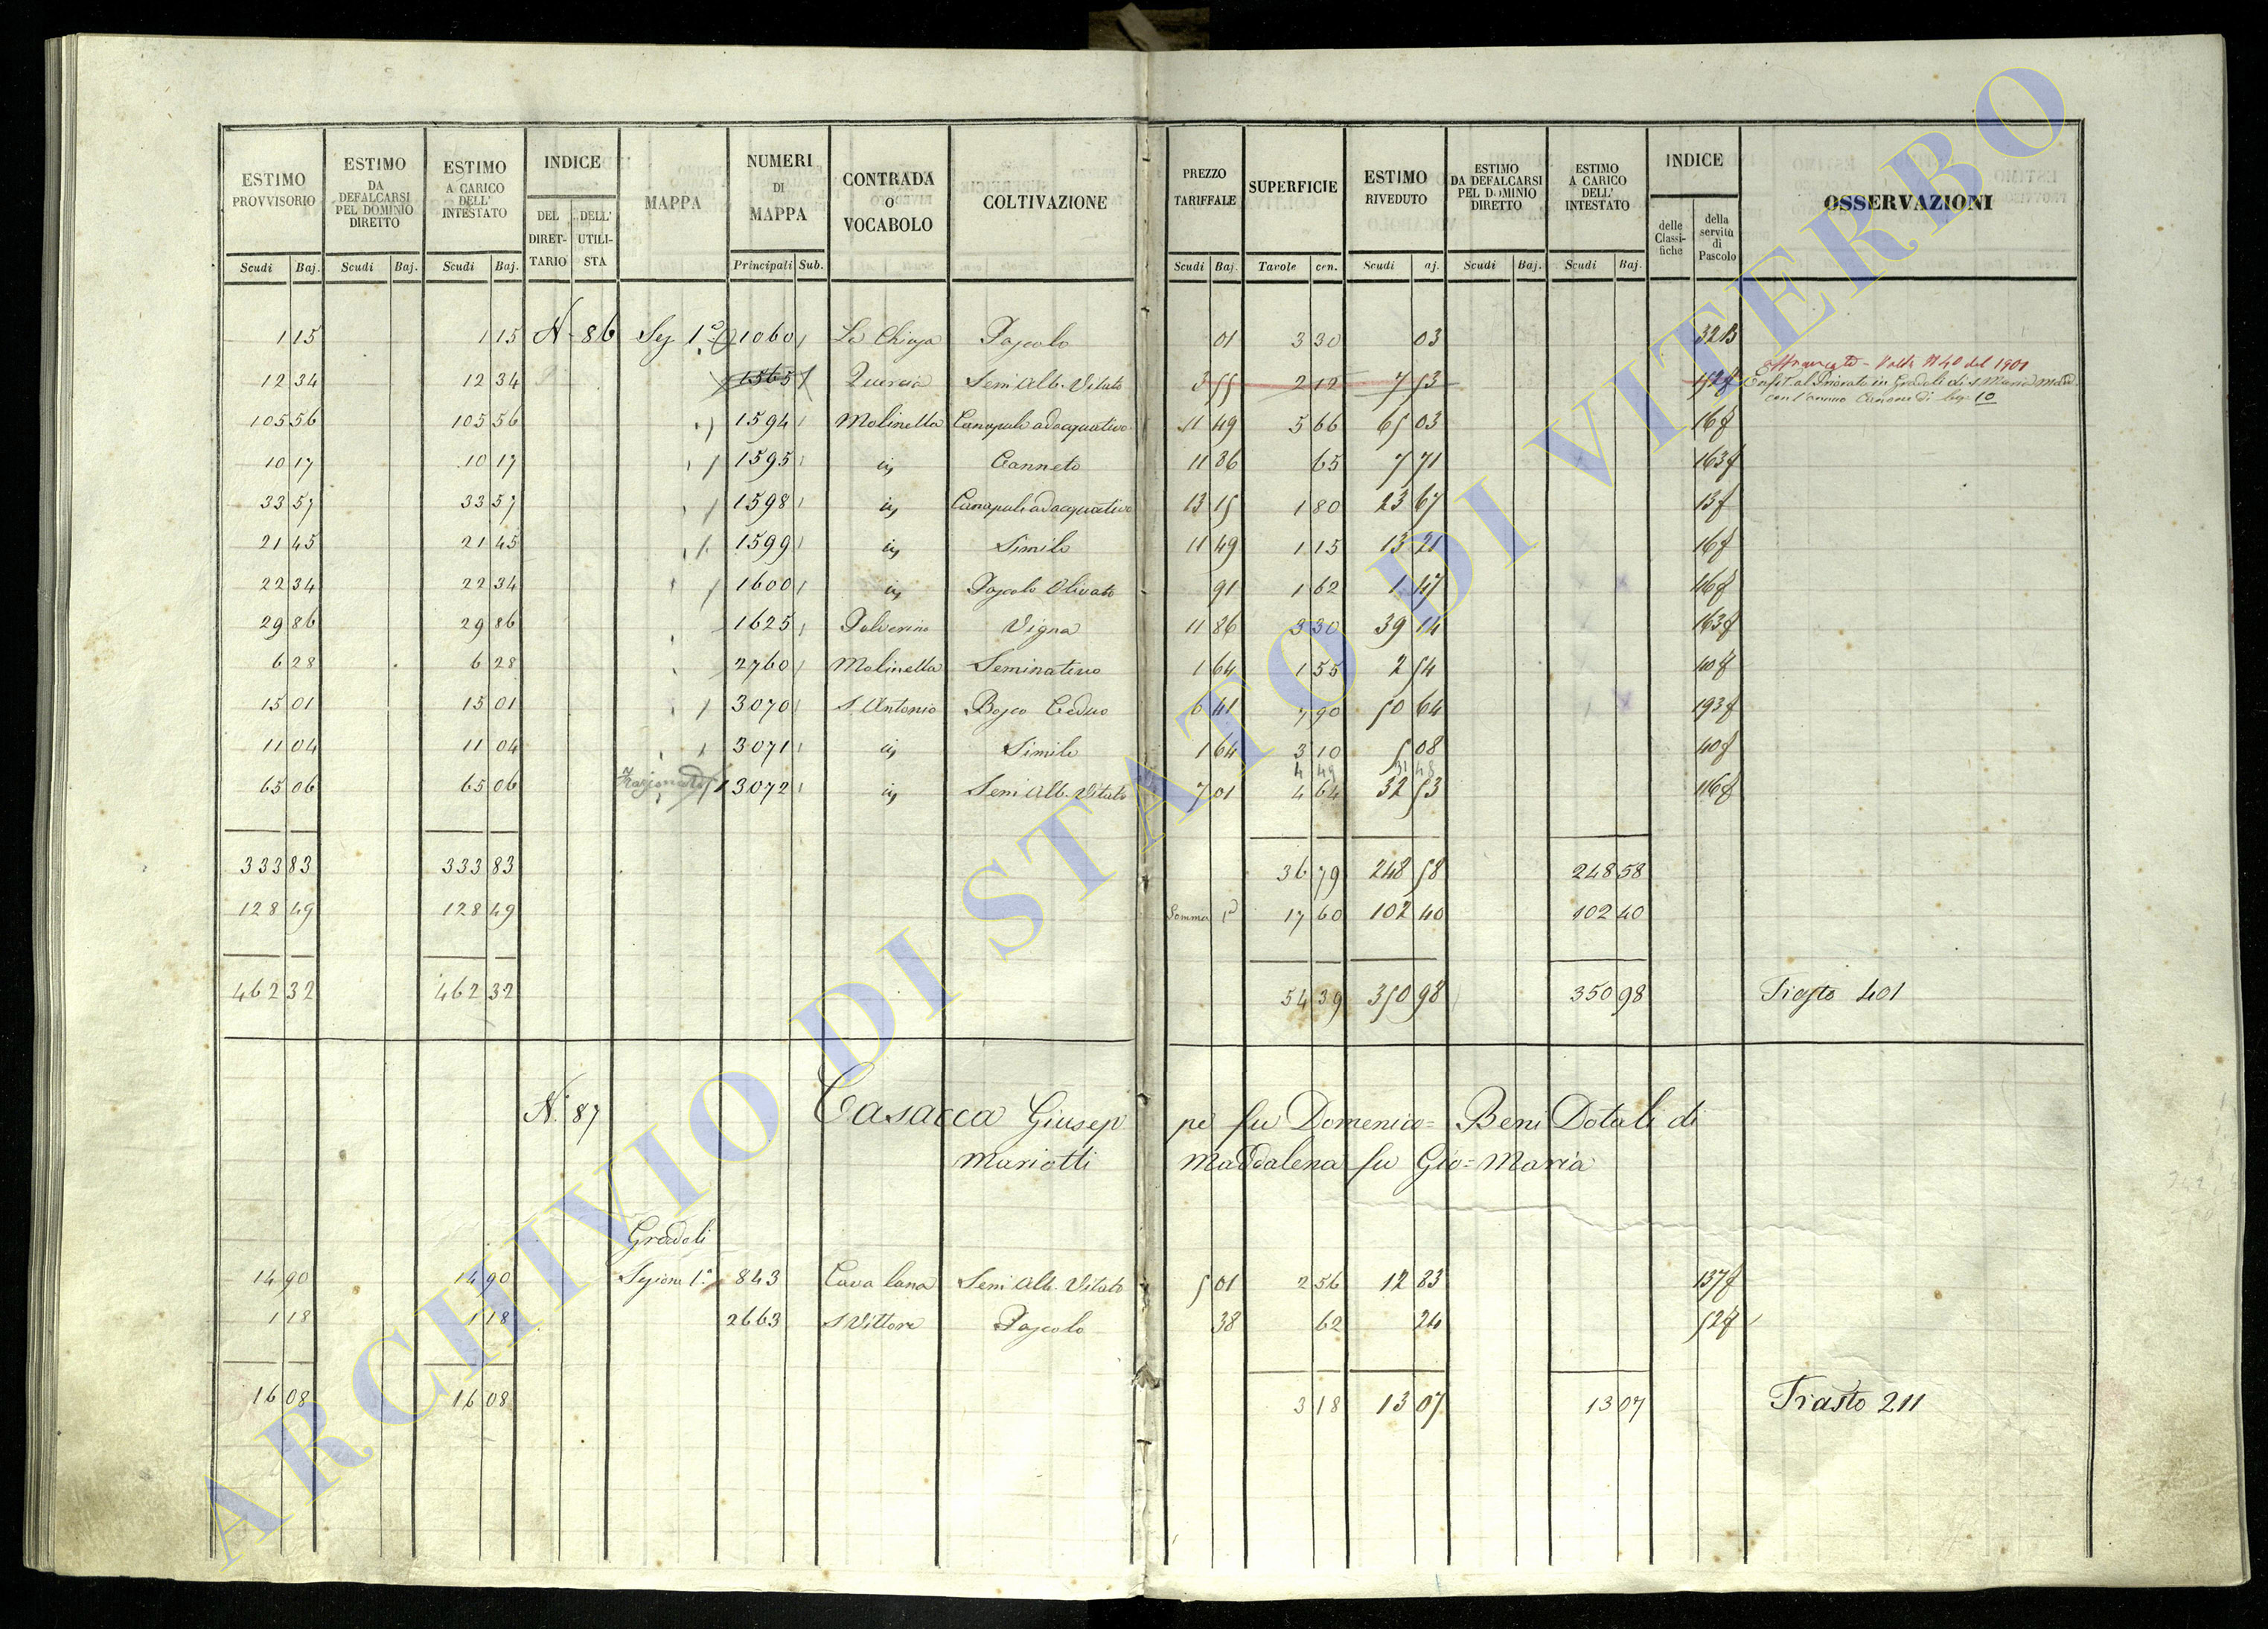 ESTIMO PROVVISORIO | ESTIMO DA DEFALCARSI PEL DOMINIO DIRETTO | ESTIMO A CARICO DELL' INTESTATO | INDICE DEL DIRETTARIO DELL' UTILISTA | MAPPA | NUMERI DI MAPPA | CONTRADA O VOCABOLO | COLTIVAZIONE | PREZZO TARIFFALE | SUPERFICIE | ESTIMO RIVEDUTO | ESTIMO DA DEFALCARSI PEL DOMINIO DIRETTO | ESTIMO A CARICO DELL' INTESTATO | INDICE delle Classifiche della servitù di Pascolo | OSSERVAZIONI
Scudi Baj. Scudi Baj. Scudi Baj. Principali Sub. Scudi Baj. Tavole cen. Scudi aj. Scudi Baj. Scudi Baj.
1 15 1 15 N 86 Sez 1ª 1060 La Chiaja Pascolo 01 3 30 03
12 34 12 34 1565 Quercia Semi Alb. Vitato 3 55 2 12 7 53 Affrancato - Volta N 40 del 1901
Enfit. al Priorato in Gradoli di S. Maria Madd.
con l'annuo Canone di bq. 10
105 56 105 56 1594 Molinella Canapule adacquativo 11 49 5 66 65 03 16f
10 17 10 17 1595 Canneto 11 86 65 7 71 163f
33 57 33 57 1598 Canapule adacquativo 13 15 1 80 23 67 13f
21 45 21 45 1599 Simile 11 49 1 15 13 21 16f
22 34 22 34 1600 Pascolo Olivato 91 1 62 1 47 116f
29 86 29 86 1625 Polverino Vigna 11 86 3 30 39 14 163f
6 28 6 28 2760 Molinella Seminativo 1 64 1 55 2 54 40f
15 01 15 01 3070 S. Antonio Bosco Ceduo 6 41 7 90 50 64 193f
11 04 11 04 3071 Simile 1 64 3 10 5 08 40f
4 49 31 48
65 06 65 06 Frazionato 3072 Semi Alb. Vitato 7 01 4 64 32 53 116f
333 83 333 83 36 79 248 58 248 58
128 49 128 49 Somma 1ª 17 60 102 40 102 40
462 32 462 32 54 39 350 98 350 98 Trasto 401
N. 87 Casacca Giuseppe fu Domenico = Beni Dotali di
Mariotti Maddalena fu Gio = Maria
Gradoli
14 90 14 90 Sezione 1ª 843 Cava lana Semi Alb. Vitato 5 01 2 56 12 83 137f
1 18 1 18 2663 S. Vittore Pascolo 38 62 24 52f
16 08 16 08 3 18 13 07 13 07 Trasto 211
ARCHIVIO DI STATO DI VITERBO